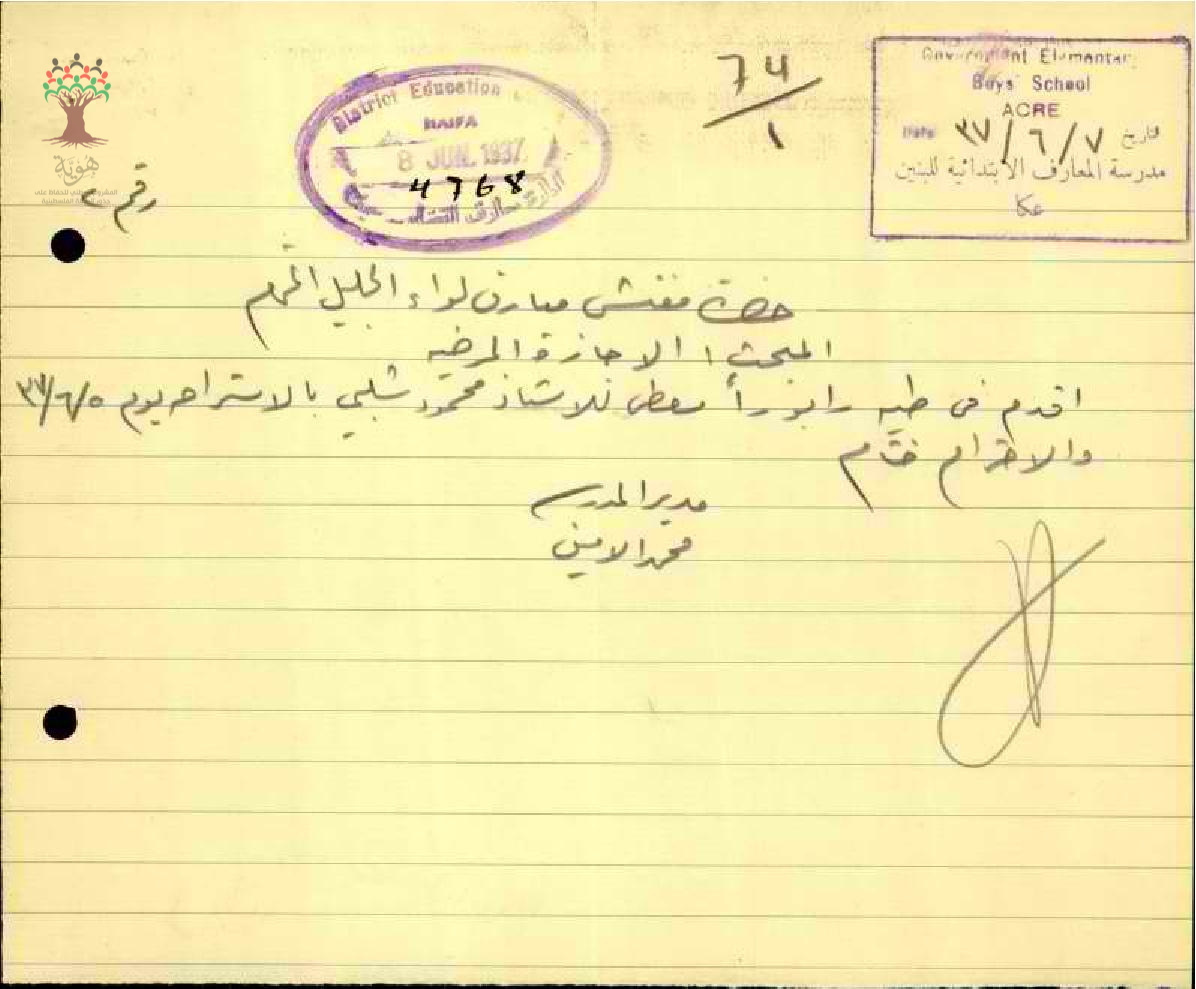 Government Elementary
Boys' School
ACRE
Date ٣٧/٦/٧ تاريخ
مدرسة المعارف الابتدائية للبنين
عكا
74
١
District Education
HAIFA
8 JUN. 1937
4768
هوية
رقم
حضرة مفتش معارف لواء الجليل المحترم
المبحث ، الاجازة المرضيه
اقدم في طيه رابوراً معطى للاستاذ محمود شلبي بالاستراحه يوم ٣٧/٦/٥
والاحترام ختام
مدير المدرسه
محمد الامين